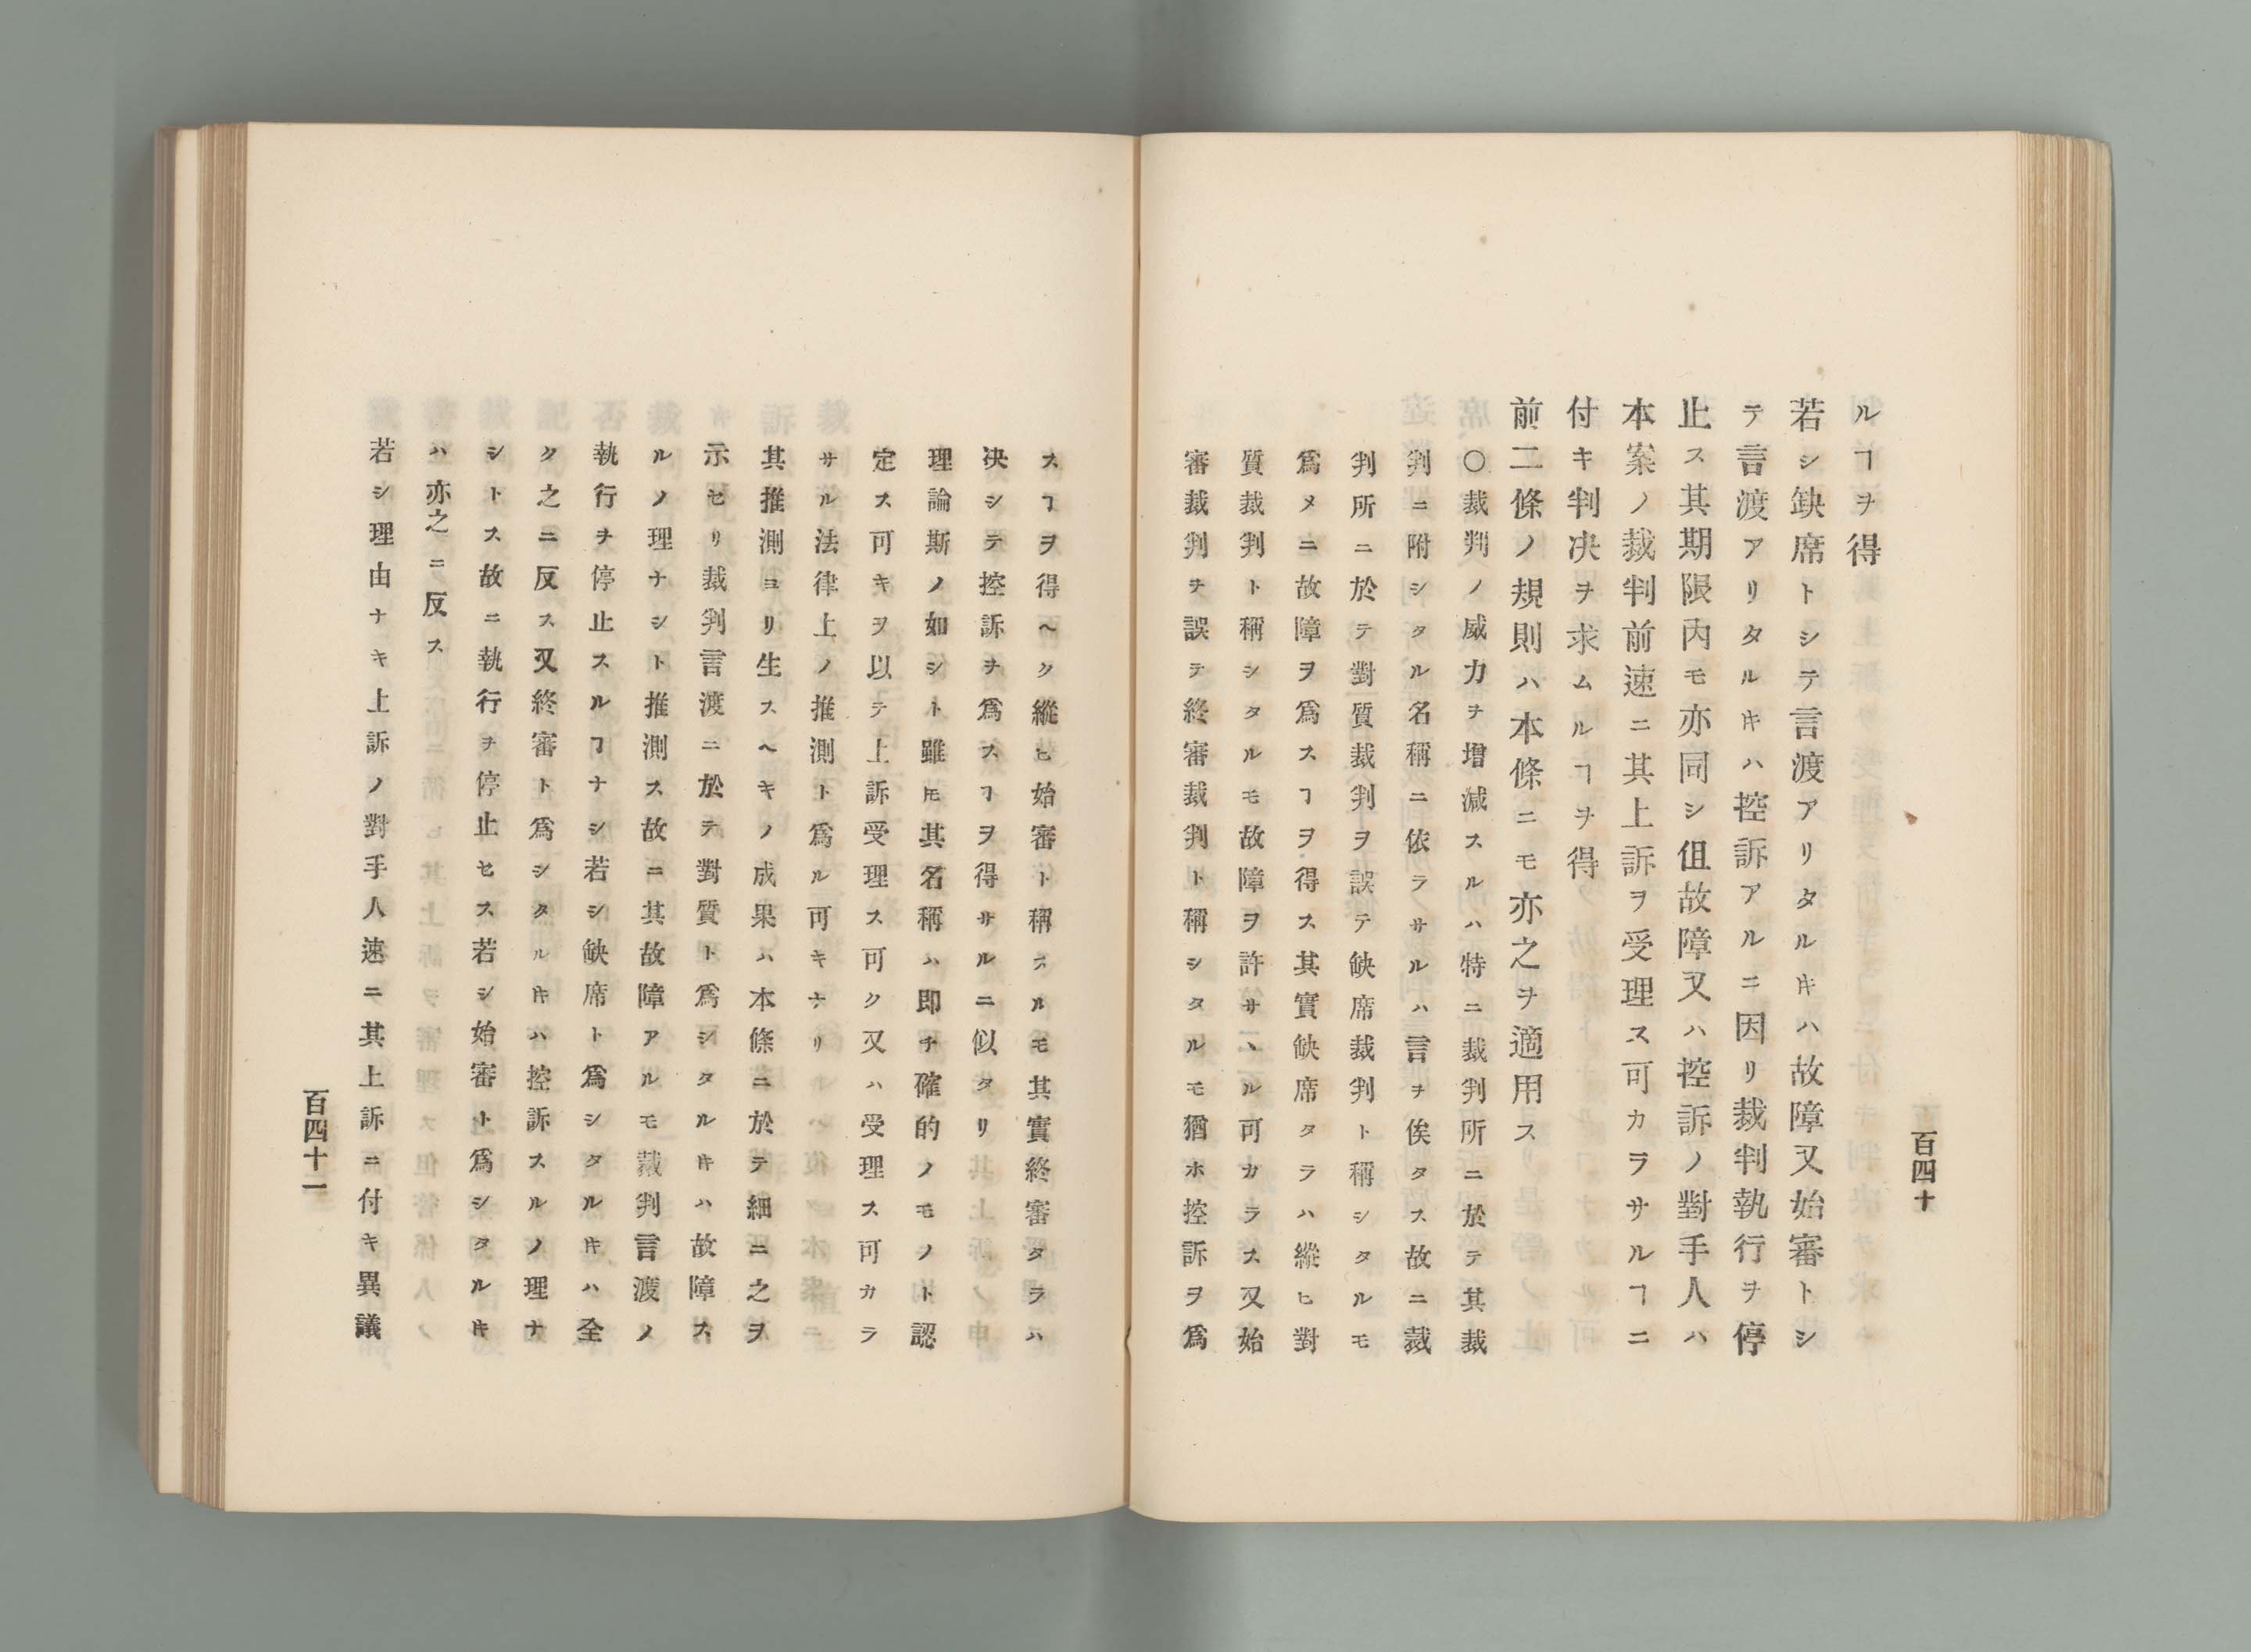 百四十
ルヿヲ得
若シ缺席トシテ言渡アリタルキハ故障又始審トシ
テ言渡アリタルキハ控訴アルニ因リ裁判執行ヲ停
止ス其期限内モ亦同シ但故障又ハ控訴ノ對手人ハ
本案ノ裁判前速ニ其上訴ヲ受理ス可カラサルヿニ
付キ判决ヲ求ムルヿヲ得
前二條ノ規則ハ本條ニモ亦之ヲ適用ス
〇裁判ノ威力ヲ增減スルハ特ニ裁判所ニ於テ其裁
判ニ附シタル名稱ニ依ラサルハ言ヲ俟タス故ニ裁
判所ニ於テ對質裁判ヲ誤テ缺席裁判ト稱シタルモ
爲メニ故障ヲ爲スヿヲ得ス其實缺席タラハ縱ヒ對
質裁判ト稱シタルモ故障ヲ許サヽル可カラス又始
審裁判ヲ誤テ終審裁判ト稱シタルモ猶ホ控訴ヲ爲
スヿヲ得ヘク縱ヒ始審ト稱スルモ其實終審タラハ
决シテ控訴ヲ爲スヿヲ得サルニ似タリ
理論斯ノ如シト雖𪜈其名稱ハ卽チ確的ノモノト認
定ス可キヲ以テ上訴受理ス可ク又ハ受理ス可カラ
サル法律上ノ推測ト爲ル可キナリ
其推測ヨリ生スヘキノ成果ハ本條ニ於テ細ニ之ヲ
示セリ裁判言渡ニ於テ對質ト爲シタルキハ故障ス
ルノ理ナシト推測ス故ニ其故障アルモ裁判言渡ノ
執行ヲ停止スルヿナシ若シ缺席ト爲シタルキハ全
ク之ニ反ス又終審ト爲シタルキハ控訴スルノ理ナ
シトス故ニ執行ヲ停止セス若シ始審ト爲シタルキ
ハ亦之ニ反ス
若シ理由ナキ上訴ノ對手人速ニ其上訴ニ付キ異議
百四十一